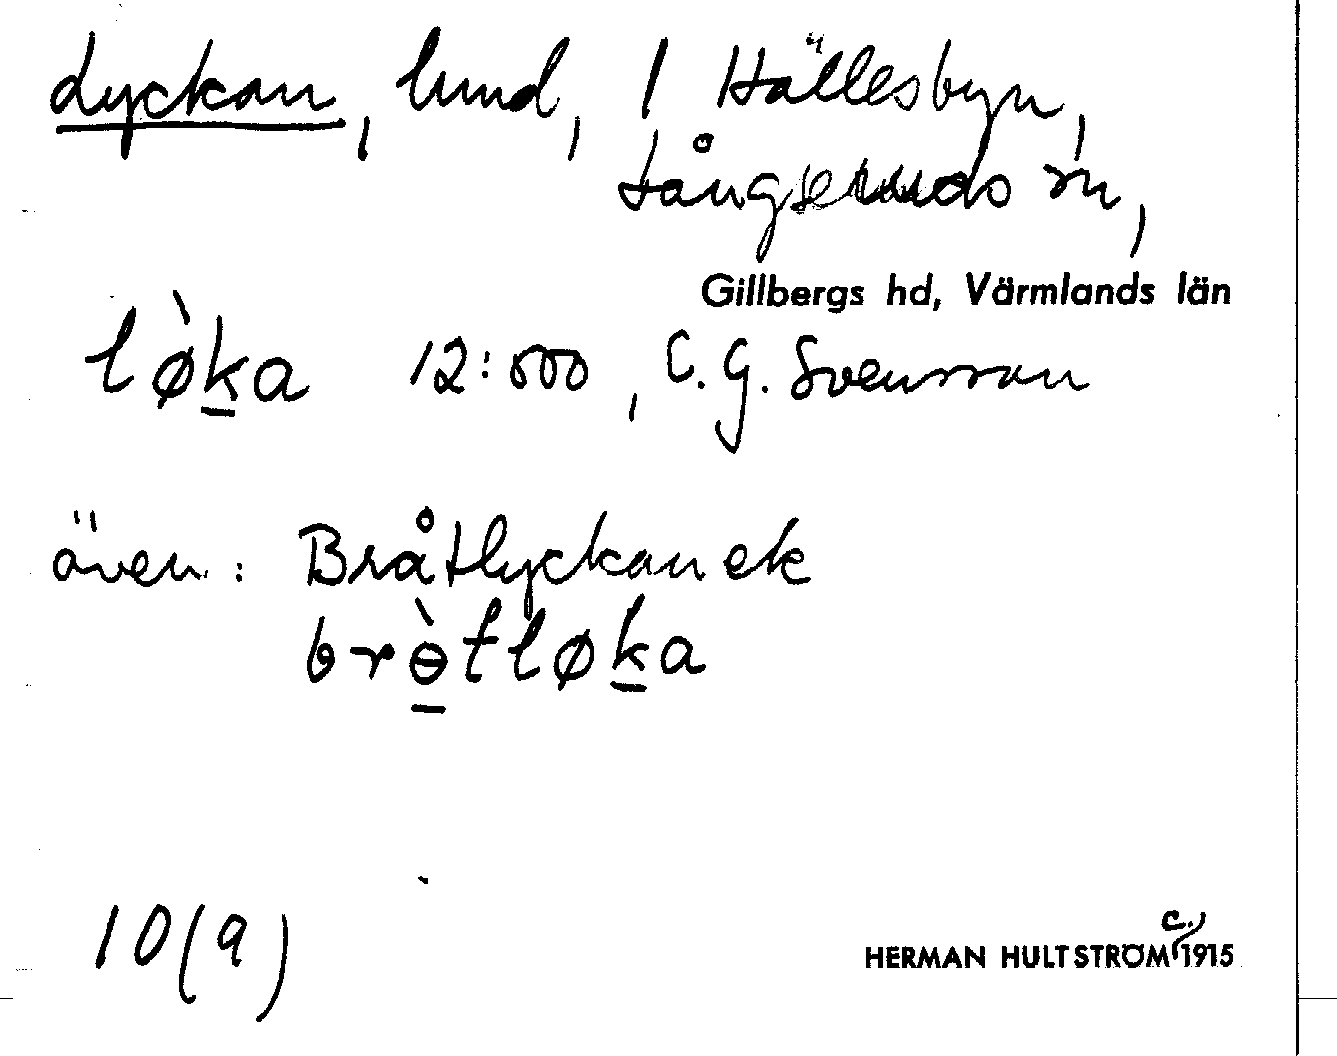 Lyckan, lund, 1 Hällesbyn,
Långseruds sn,
Gillbergs hd, Värmlands län
lø̀k̲a 12:500, C. G. Svensson
även: Bråtlyckan ek
brɵ̲̀tløk̲a
10(9)
c.
HERMAN HULTSTRÖM 1915